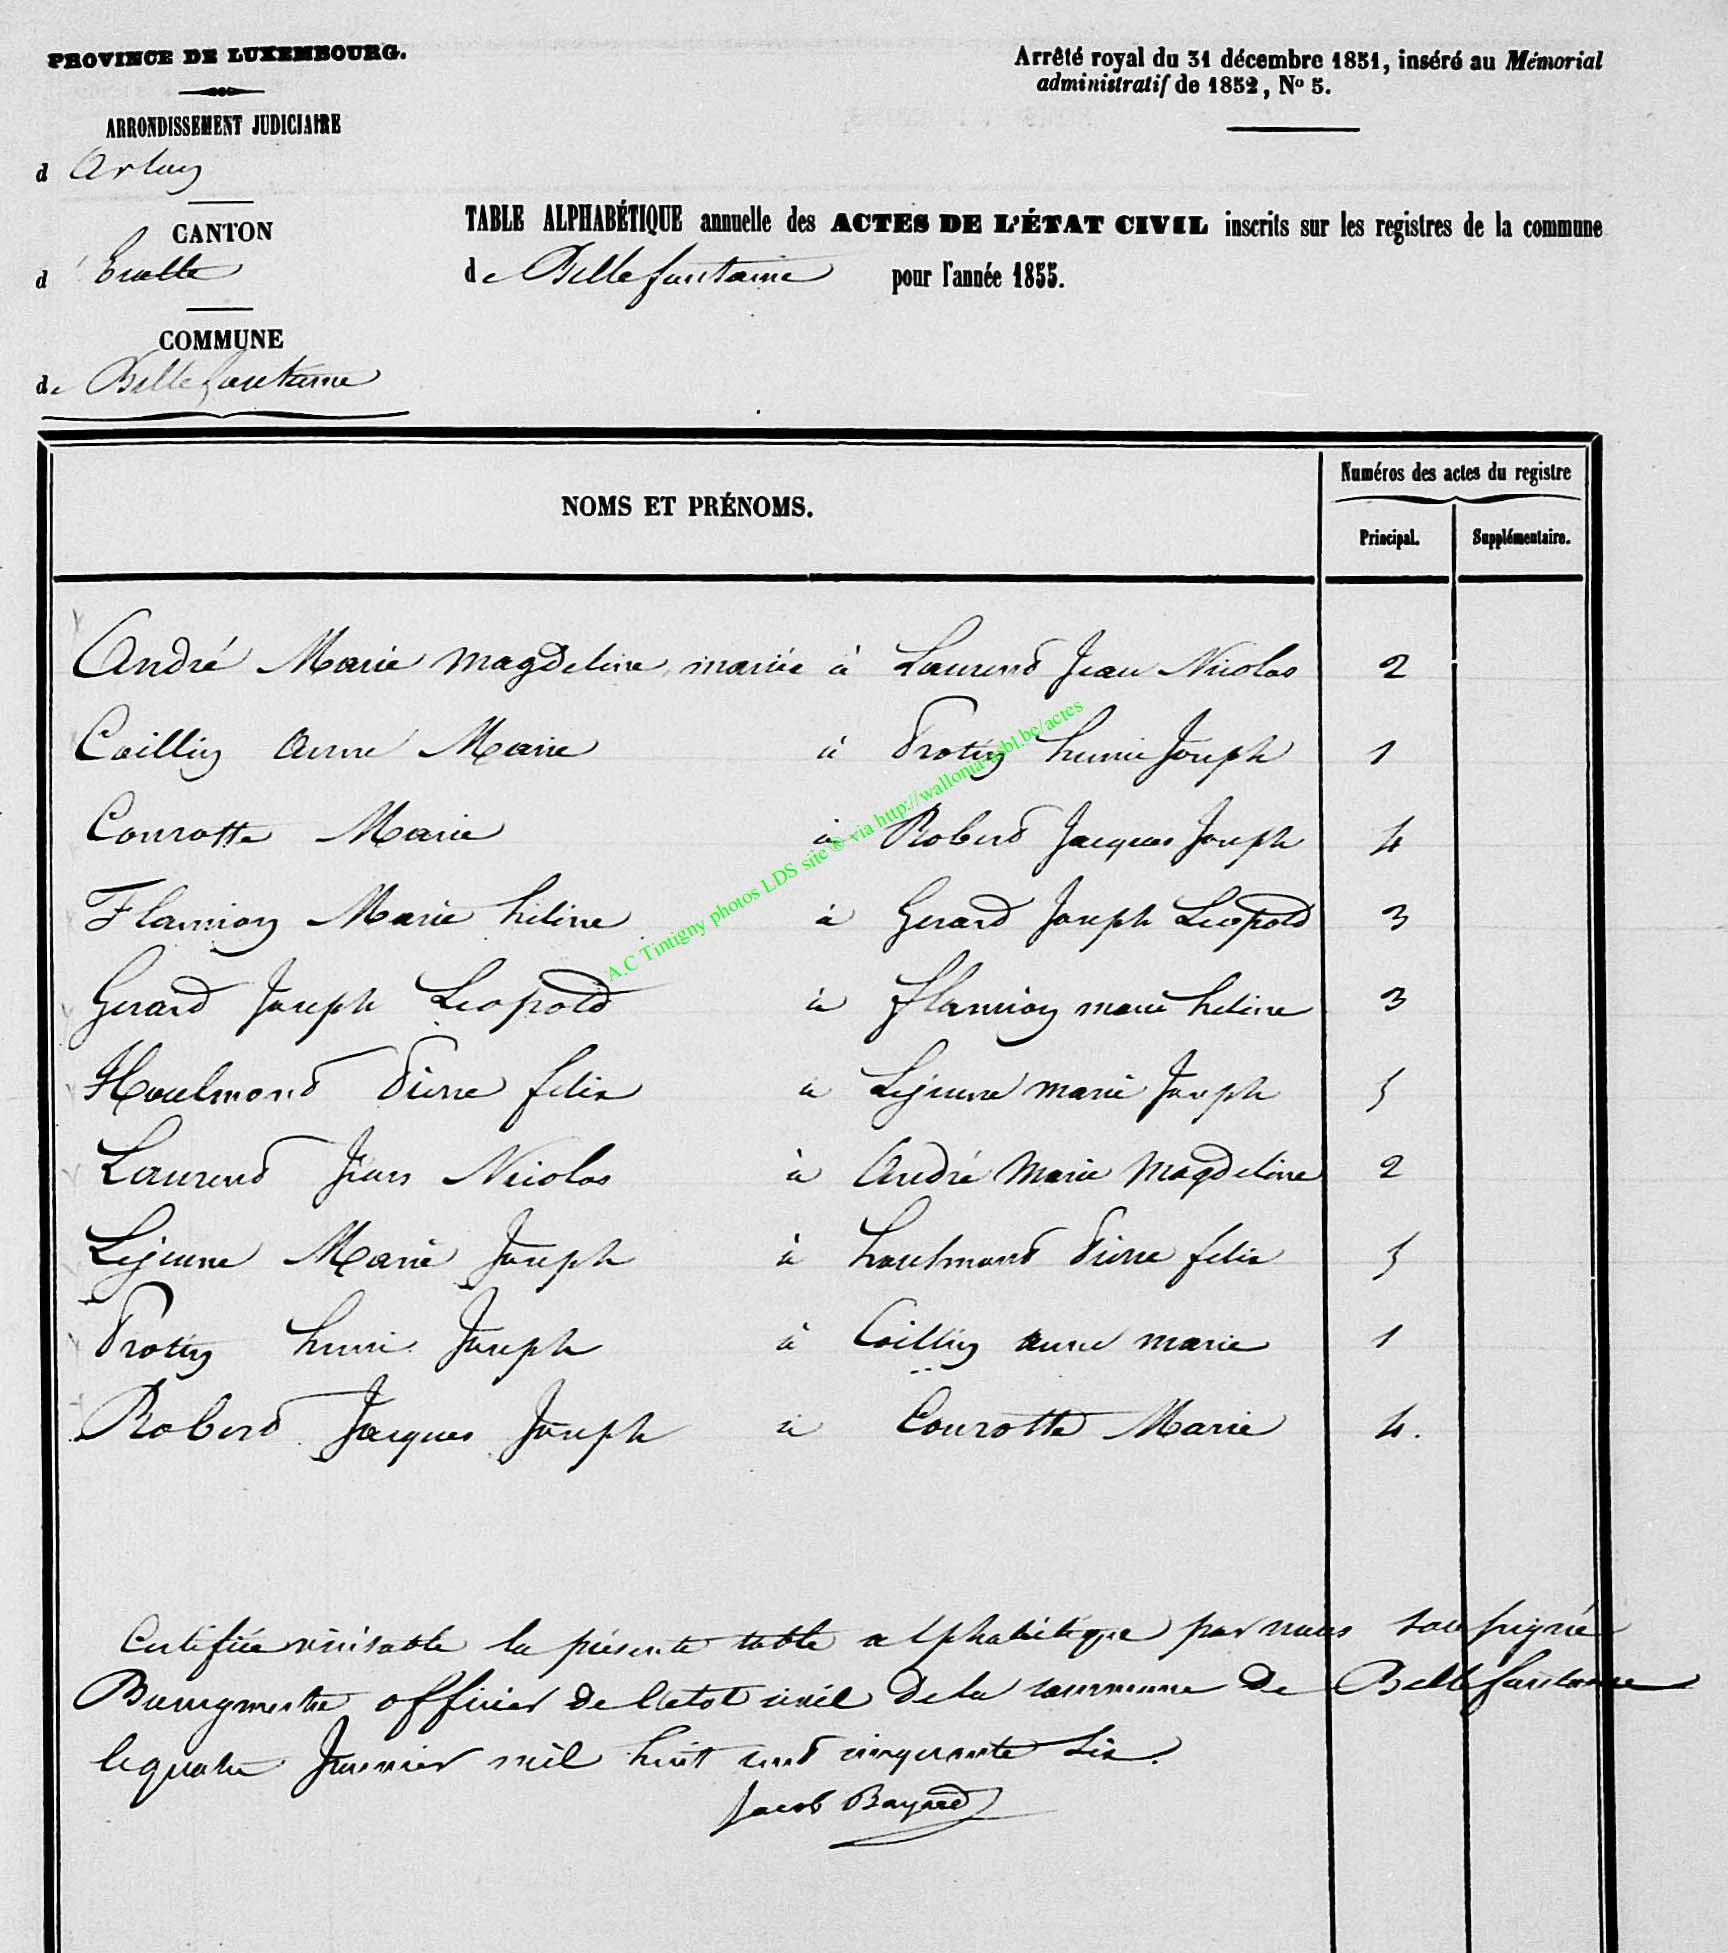 PROVINCE DE LUXEMBOURG.
ARRONDISSEMENT JUDICIAIRE
d Arlon
CANTON
d' Etalle
COMMUNE
de Bellefontaine
Arrêté royal du 31 décembre 1851, inséré au Mémorial
administratif de 1852, No 5.
TABLE ALPHABÉTIQUE annuelle des ACTES DE L'ÉTAT CIVIL inscrits sur les registres de la commune
de Bellefontaine pour l'année 1855.
NOMS ET PRÉNOMS.
Numéros des actes du registre
Principal. Supplémentaire.
André Marie Magdeleine, mariée à Laurend Jean Nicolas 2
Caillin anne Marie à Protin henri Joseph 1
Conrotte Marie à Roberd Jacques Joseph 4
Flamion Marie héléne à Gerard Joseph Leopold 3
Gerard Joseph Leopold à flamion marie heléne 3
Houlmond Pierre felix à Lejeune marie Joseph 5
Laurend Jean Nicolas à André Marie Magdeleine 2
Lejeune Marie Joseph à houlmond Pierre felix 5
Protin henri Joseph à Caillin anne marie 1
Roberd Jacques Joseph à Conrotte Marie 4.
Certifiée véritable la présente table alphabétique par nous soussigné
Bourgmestre officier de l'etat civil de la commune de Bellefontaine
le quatre Janvier mil huit cent cinquante six.
Jacob Bayard
A.C Tintigny photos LDS site ® via http://wallonia-asbl.be/actes